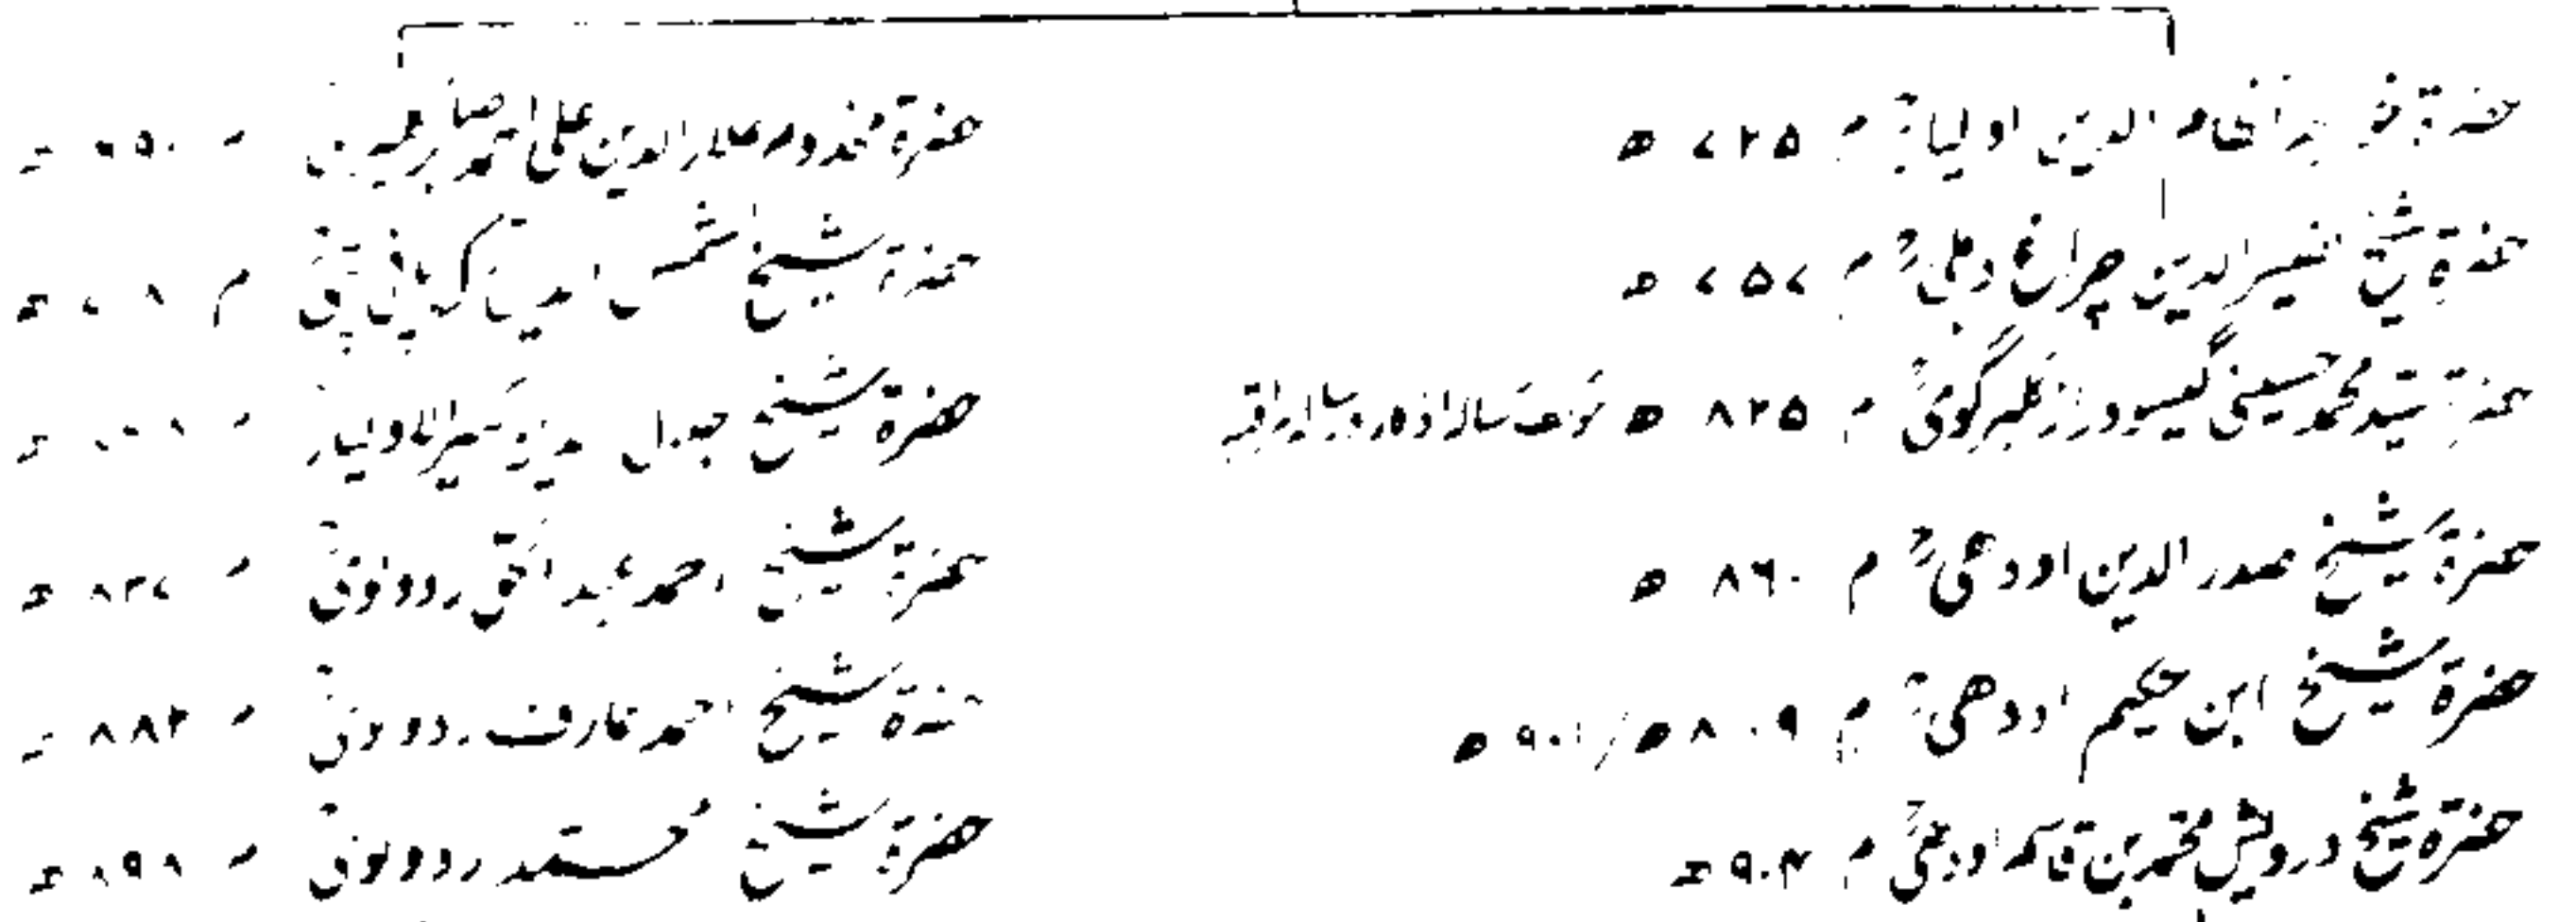 حضرة خواجہ نظام الدین اولیاءؒ م ۷۲۵ ھ
حضرة شیخ نصیر الدین چراغ دہلیؒ م ۷۵۷ ھ
حضرة سید محمد حسینی گیسودراز گلبرگویؒ م ۸۲۵ ھ
حضرة شیخ صدر الدین اودھیؒ م ۸۶۰ ھ
حضرة شیخ ابن حکیم اودھیؒ م ۸۰۹ ھ / ۹۰۱ ھ
حضرة شیخ درویش محمد بن قاسم اودھیؒ م ۹۰۴ ھ
حضرة مخدوم علاء الدین علی احمد صابر م ھ
حضرة شیخ شمس الدین ترک پانی پتیؒ م ھ
حضرة شیخ جلال الدین کبیر الاولیاء م ھ
حضرة شیخ احمد عبد الحق ردولویؒ م ۸۳۷ ھ
حضرة شیخ احمد عارف ردولویؒ م ۸۸۲ ھ
حضرة شیخ محمد ردولویؒ م ۸۹۸ ھ